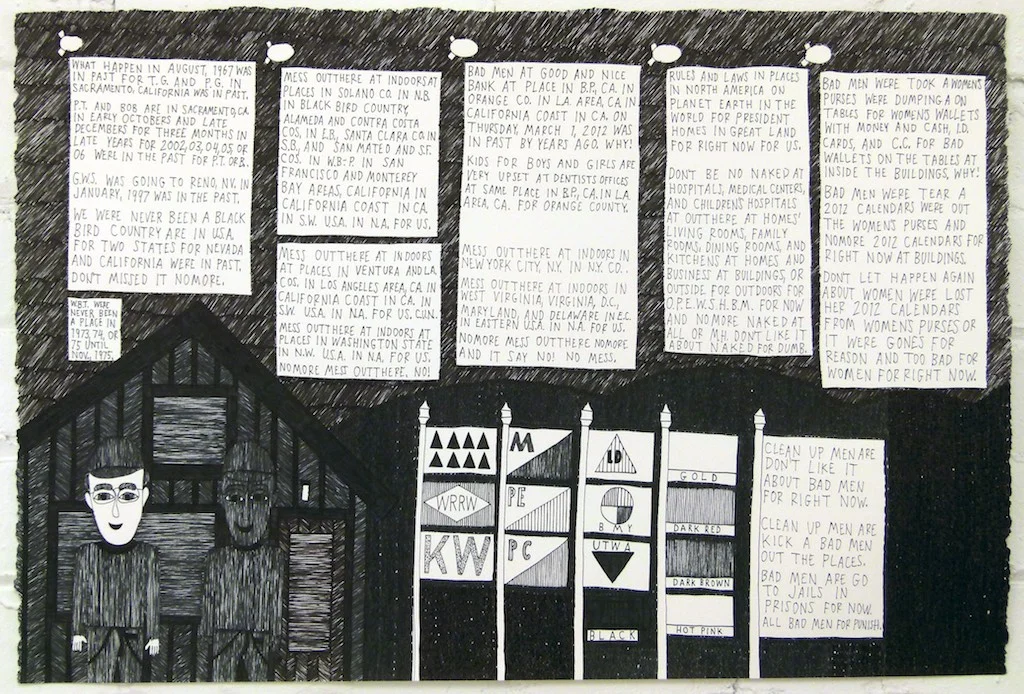 WHAT HAPPEN IN AUGUST, 1967 WAS
IN PAST FOR T.G. AND P.G. IN
SACRAMENTO, CALIFORNIA WAS IN PAST.
P.T. AND BOB ARE IN SACRAMENTO, CA.
IN EARLY OCTOBERS AND LATE
DECEMBERS FOR THREE MONTHS IN
LATE YEARS FOR 2002, 03, 04, 05, OR
06 WERE IN THE PAST FOR P.T. OR B.
G.W.S. WAS GOING TO RENO, NV. IN
JANUARY, 1997 WAS IN THE PAST.
WE WERE NEVER BEEN A BLACK
BIRD COUNTRY ARE IN USA.
FOR TWO STATES FOR NEVADA
AND CALIFORNIA WERE IN PAST.
DON'T MISSED IT NOMORE.
W.B.T. WERE
NEVER BEEN
A PLACE IN
1973, 74, OR
75 UNTIL
NOV., 1975.
MESS OUTTHERE AT INDOORS AT
PLACES IN SOLANO CO. IN N.B.
IN BLACK BIRD COUNTRY,
ALAMEDA AND CONTRA COSTA
COS. IN E.B., SANTA CLARA CO. IN
S.B., AND SAN MATEO AND S.F.
COS. IN W.B-P. IN SAN
FRANCISCO AND MONTEREY
BAY AREAS, CALIFORNIA IN
CALIFORNIA COAST IN CA.
IN S.W. U.S.A. IN N.A. FOR US.
MESS OUTTHERE AT INDOORS
AT PLACES IN VENTURA AND LA.
COS. IN LOS ANGELES AREA, CA. IN
CALIFORNIA COAST IN CA. IN
S.W. USA. IN N.A. FOR US, C.U.N.
MESS OUTTHERE AT INDOORS AT
PLACES IN WASHINGTON STATE
IN N.W. U.S.A. IN N.A. FOR US.
NOMORE MESS OUTTHERE, NO!
BAD MEN AT GOOD AND NICE
BANK AT PLACE IN B.P., CA. IN
ORANGE CO. IN L.A. AREA, CA. IN
CALIFORNIA COAST IN CA. ON
THURSDAY, MARCH 1, 2012 WAS
IN PAST BY YEARS AGO. WHY!
KIDS FOR BOYS AND GIRLS ARE
VERY UPSET AT DENTISTS OFFICES
AT SAME PLACE IN B.P., CA. IN LA
AREA, CA. FOR ORANGE COUNTY.
MESS OUTTHERE AT INDOORS IN
NEW YORK CITY, N.Y. IN N.Y. CO..
MESS OUTTHERE AT INDOORS IN
WEST VIRGINIA, VIRGINIA, D.C.,
MARYLAND, AND DELAWARE IN E.C.
IN EASTERN U.S.A. IN N.A. FOR US.
NOMORE MESS OUTTHERE NOMORE
AND IT SAY NO! NO MESS.
RULES AND LAWS IN PLACES
IN NORTH AMERICA ON
PLANET EARTH IN THE
WORLD FOR PRESIDENT
HOMES IN GREAT LAND
FOR RIGHT NOW FOR US.
DON'T BE NO NAKED AT
HOSPITALS, MEDICAL CENTERS,
AND CHILDRENS HOSPITALS
AT OUTTHERE AT HOMES'
LIVING ROOMS, FAMILY
ROOMS, DINING ROOMS, AND
KITCHENS AT HOMES AND
BUSINESS AT BUILDINGS, OR
OUTSIDE FOR OUTDOORS FOR
O.P.E.W.S.H.B.M. FOR NOW
AND NOMORE NAKED AT
ALL OR M.H. DON'T LIKE IT
ABOUT NAKED FOR DUMB.
BAD MEN WERE TOOK A WOMENS
PURSES WERE DUMPING A ON
TABLES FOR WOMENS WALLETS
WITH MONEY AND CASH, I.D.
CARDS, AND C.C. FOR BAD
WALLETS ON THE TABLES AT
INSIDE THE BUILDINGS, WHY!
BAD MEN WERE TEAR A
2012 CALENDARS WERE OUT
THE WOMENS PURSES AND
NOMORE 2012 CALENDARS FOR
RIGHT NOW AT BUILDINGS.
DON'T LET HAPPEN AGAIN
ABOUT WOMEN WERE LOST
HER 2012 CALENDARS
FROM WOMENS PURSES OR
IT WERE GONES FOR
REASON AND TOO BAD FOR
WOMEN FOR RIGHT NOW.
WRRW
KW
M
PE
PC
LD
BMY
UTWA
BLACK
GOLD
DARK RED
DARK BROWN
HOT PINK
CLEAN UP MEN ARE
DON'T LIKE IT
ABOUT BAD MEN
FOR RIGHT NOW.
CLEAN UP MEN ARE
KICK A BAD MEN
OUT THE PLACES.
BAD MEN ARE GO
TO JAILS IN
PRISONS FOR NOW.
ALL BAD MEN FOR PUNISH.